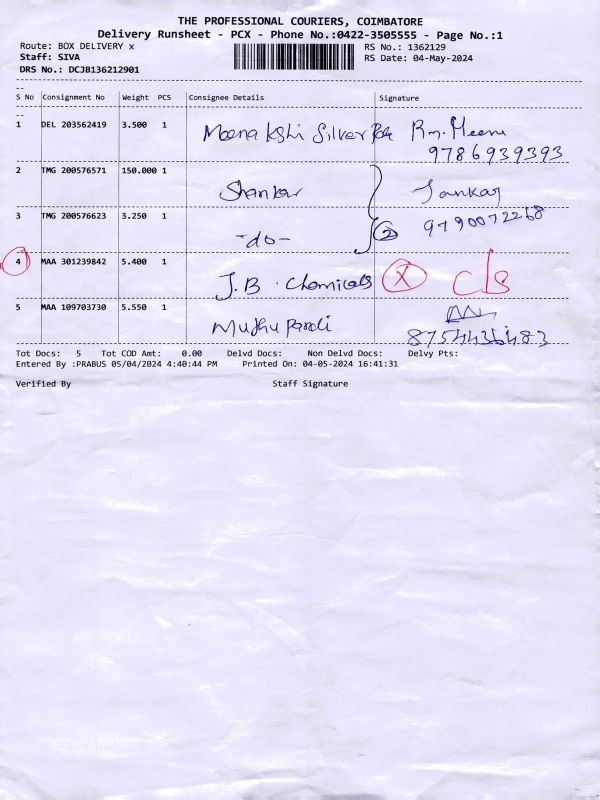 THE PROFESSIONAL COURIERS, COIMBATORE
Delivery Runsheet - PCX - Phone No.:0422-3505555 - Page No.:1
Route: BOX DELIVERY x RS No.: 1362129
Staff: SIVA RS Date: 04-May-2024
DRS No.: DCJB136212901
S No Consignment No Weight PCS Consignee Details Signature
1 DEL 203562419 3.500 1 Meenakshi Silver Park R.M. Meena
9786939393
2 TMG 200576571 150.000 1 Shankar Sankar
3 TMG 200576623 3.250 1 -do- 2 9790072268
4 MAA 301239842 5.400 1 J.B. Chemicals X C/S
5 MAA 109703730 5.550 1 Muthu Pandi
8754436483
Tot Docs: 5 Tot COD Amt: 0.00 Delvd Docs: Non Delvd Docs: Delvy Pts:
Entered By :PRABUS 05/04/2024 4:40:44 PM Printed On: 04-05-2024 16:41:31
Verified By Staff Signature